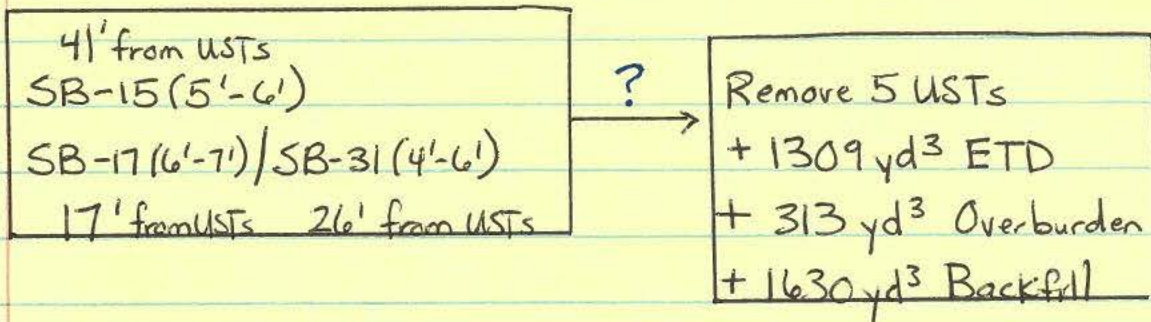 41' from USTs
SB-15 (5'-6')
SB-17 (6'-7') / SB-31 (4'-6')
17' from USTs 26' from USTs
?
Remove 5 USTs
+ 1309 yd³ ETD
+ 313 yd³ Overburden
+ 1630 yd³ Backfill